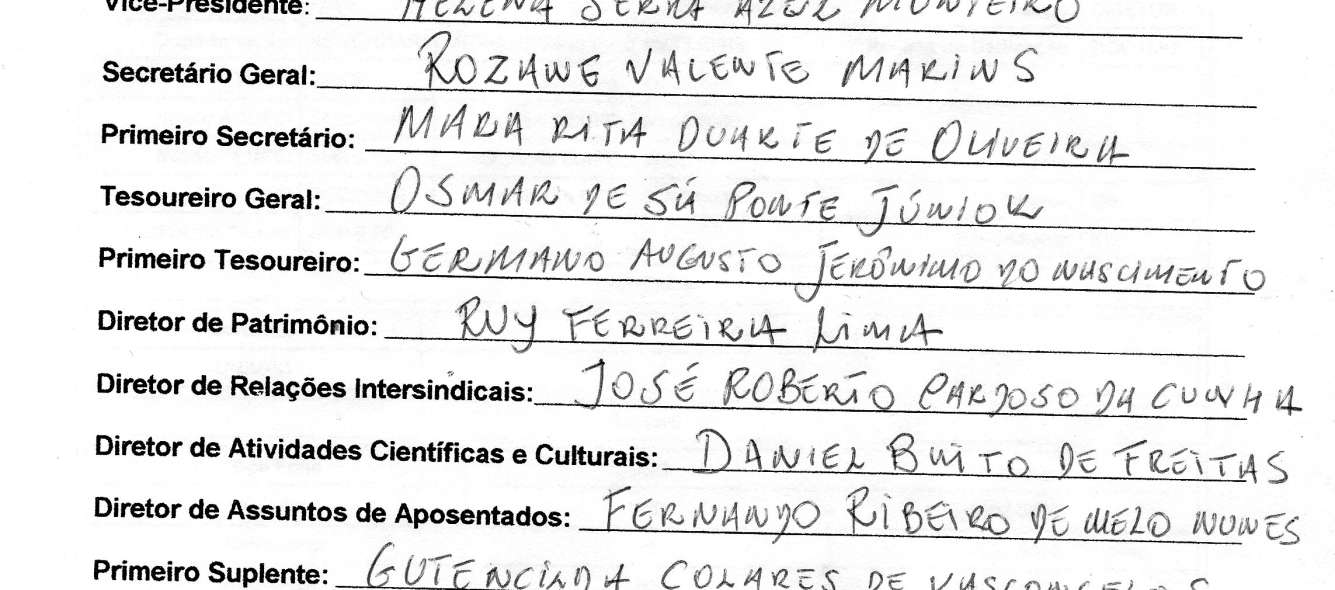 Vice-Presidente: HELENA SERRA AZUL MONTEIRO
Secretário Geral: ROZANE VALENTE MARINS
Primeiro Secretário: MARIA RITA DUARTE DE OLIVEIRA
Tesoureiro Geral: OSMAR DE SÁ PONTE JÚNIOR
Primeiro Tesoureiro: GERMANO AUGUSTO JERÔNIMO DO NASCIMENTO
Diretor de Patrimônio: RUY FERREIRA LIMA
Diretor de Relações Intersindicais: JOSÉ ROBERTO CARDOSO DA CUNHA
Diretor de Atividades Científicas e Culturais: DANIEL BRITO DE FREITAS
Diretor de Assuntos de Aposentados: FERNANDO RIBEIRO DE MELO NUNES
Primeiro Suplente: COLARES DE VASCONCELOS